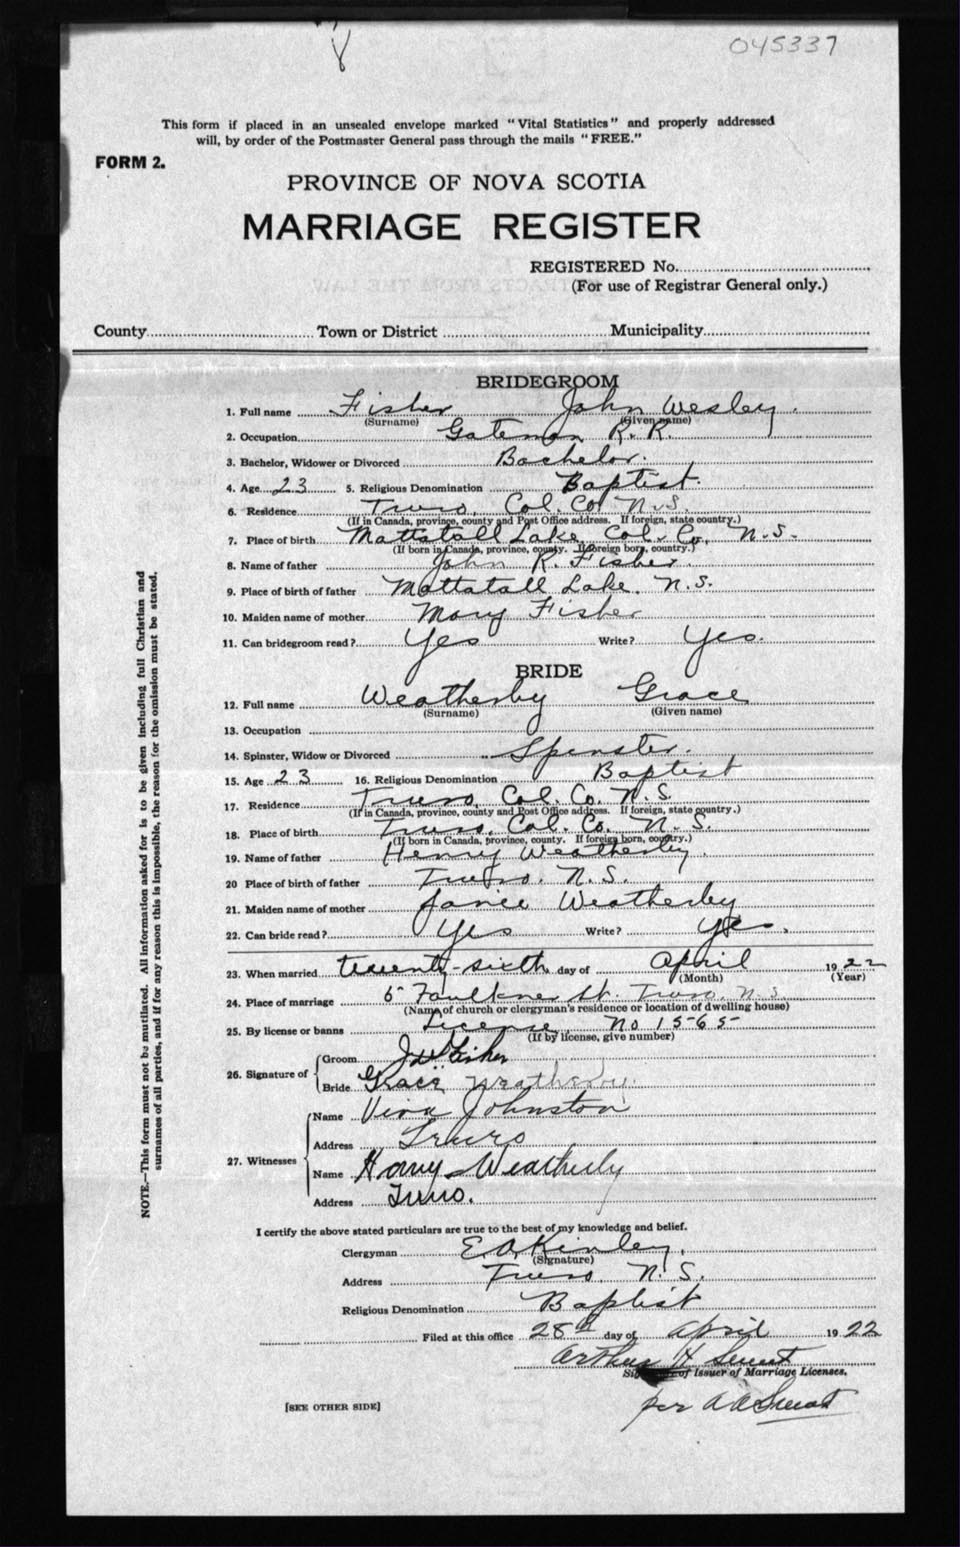 045337
This form if placed in an unsealed envelope marked "Vital Statistics" and properly addressed
will, by order of the Postmaster General pass through the mails "FREE."
FORM 2.
PROVINCE OF NOVA SCOTIA
MARRIAGE REGISTER
REGISTERED No.
(For use of Registrar General only.)
County Town or District Municipality
BRIDEGROOM
1. Full name Fisher John Wesley.
(Surname) (Given name)
2. Occupation Gateman R. R.
3. Bachelor, Widower or Divorced Bachelor.
4. Age 23 5. Religious Denomination Baptist.
6. Residence Truro, Col. Co. N.S.
(If in Canada, province, county and Post Office address. If foreign, state country.)
7. Place of birth Mattatall Lake, Col. Co., N.S.
(If born in Canada, province, county. If foreign born, country.)
8. Name of father John R. Fisher.
9. Place of birth of father Mattatall Lake. N.S.
10. Maiden name of mother Mary Fisher
11. Can bridegroom read? Yes Write? Yes.
BRIDE
12. Full name Weatherby Grace
(Surname) (Given name)
13. Occupation
14. Spinster, Widow or Divorced Spinster.
15. Age 23 16. Religious Denomination Baptist
17. Residence Truro, Col. Co. N.S.
(If in Canada, province, county and Post Office address. If foreign, state country.)
18. Place of birth Truro, Col. Co. N.S.
(If born in Canada, province, county. If foreign born, country.)
19. Name of father Henry Weatherby.
20 Place of birth of father Truro. N.S.
21. Maiden name of mother Weatherby
22. Can bride read? Yes Write? Yes.
23. When married twenty-sixth day of April 1922
(Month) (Year)
24. Place of marriage 5 Faulkner St. Truro, N.S.
(Name of church or clergyman's residence or location of dwelling house)
25. By license or banns License No 1565
(If by license, give number)
26. Signature of Groom J W Fisher
Bride Grace Weatherby.
27. Witnesses Name Johnston
Address Truro
Name Harry Weatherby
Address Truro.
NOTE.—This form must not be mutilated. All information asked for is to be given including full Christian and
surnames of all parties, and if for any reason this is impossible, the reason for the omission must be stated.
I certify the above stated particulars are true to the best of my knowledge and belief.
Clergyman E. A. Kinley.
(Signature)
Address Truro N.S.
Religious Denomination Baptist
Filed at this office 28th day of April 1922
Arthur H Smeat
of Issuer of Marriage Licenses.
[SEE OTHER SIDE]
per